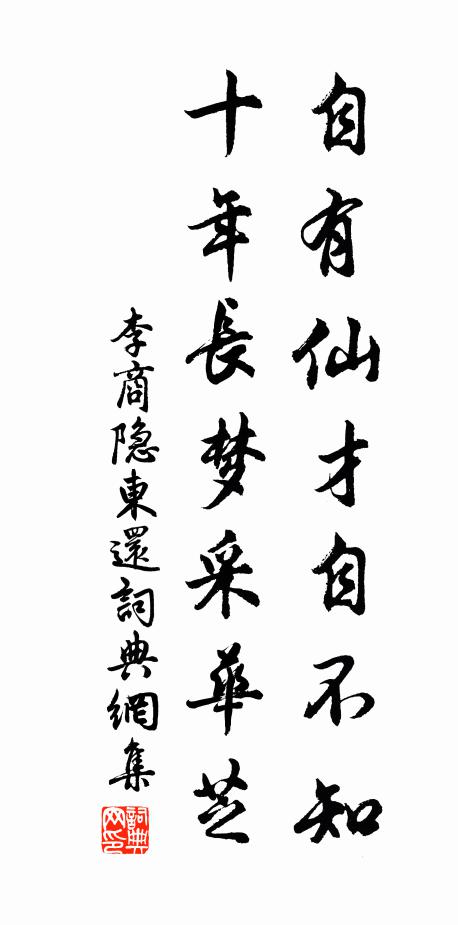 自有仙才自不知
十年長梦采華芝
李商隐東還詞典網集
詞典网印